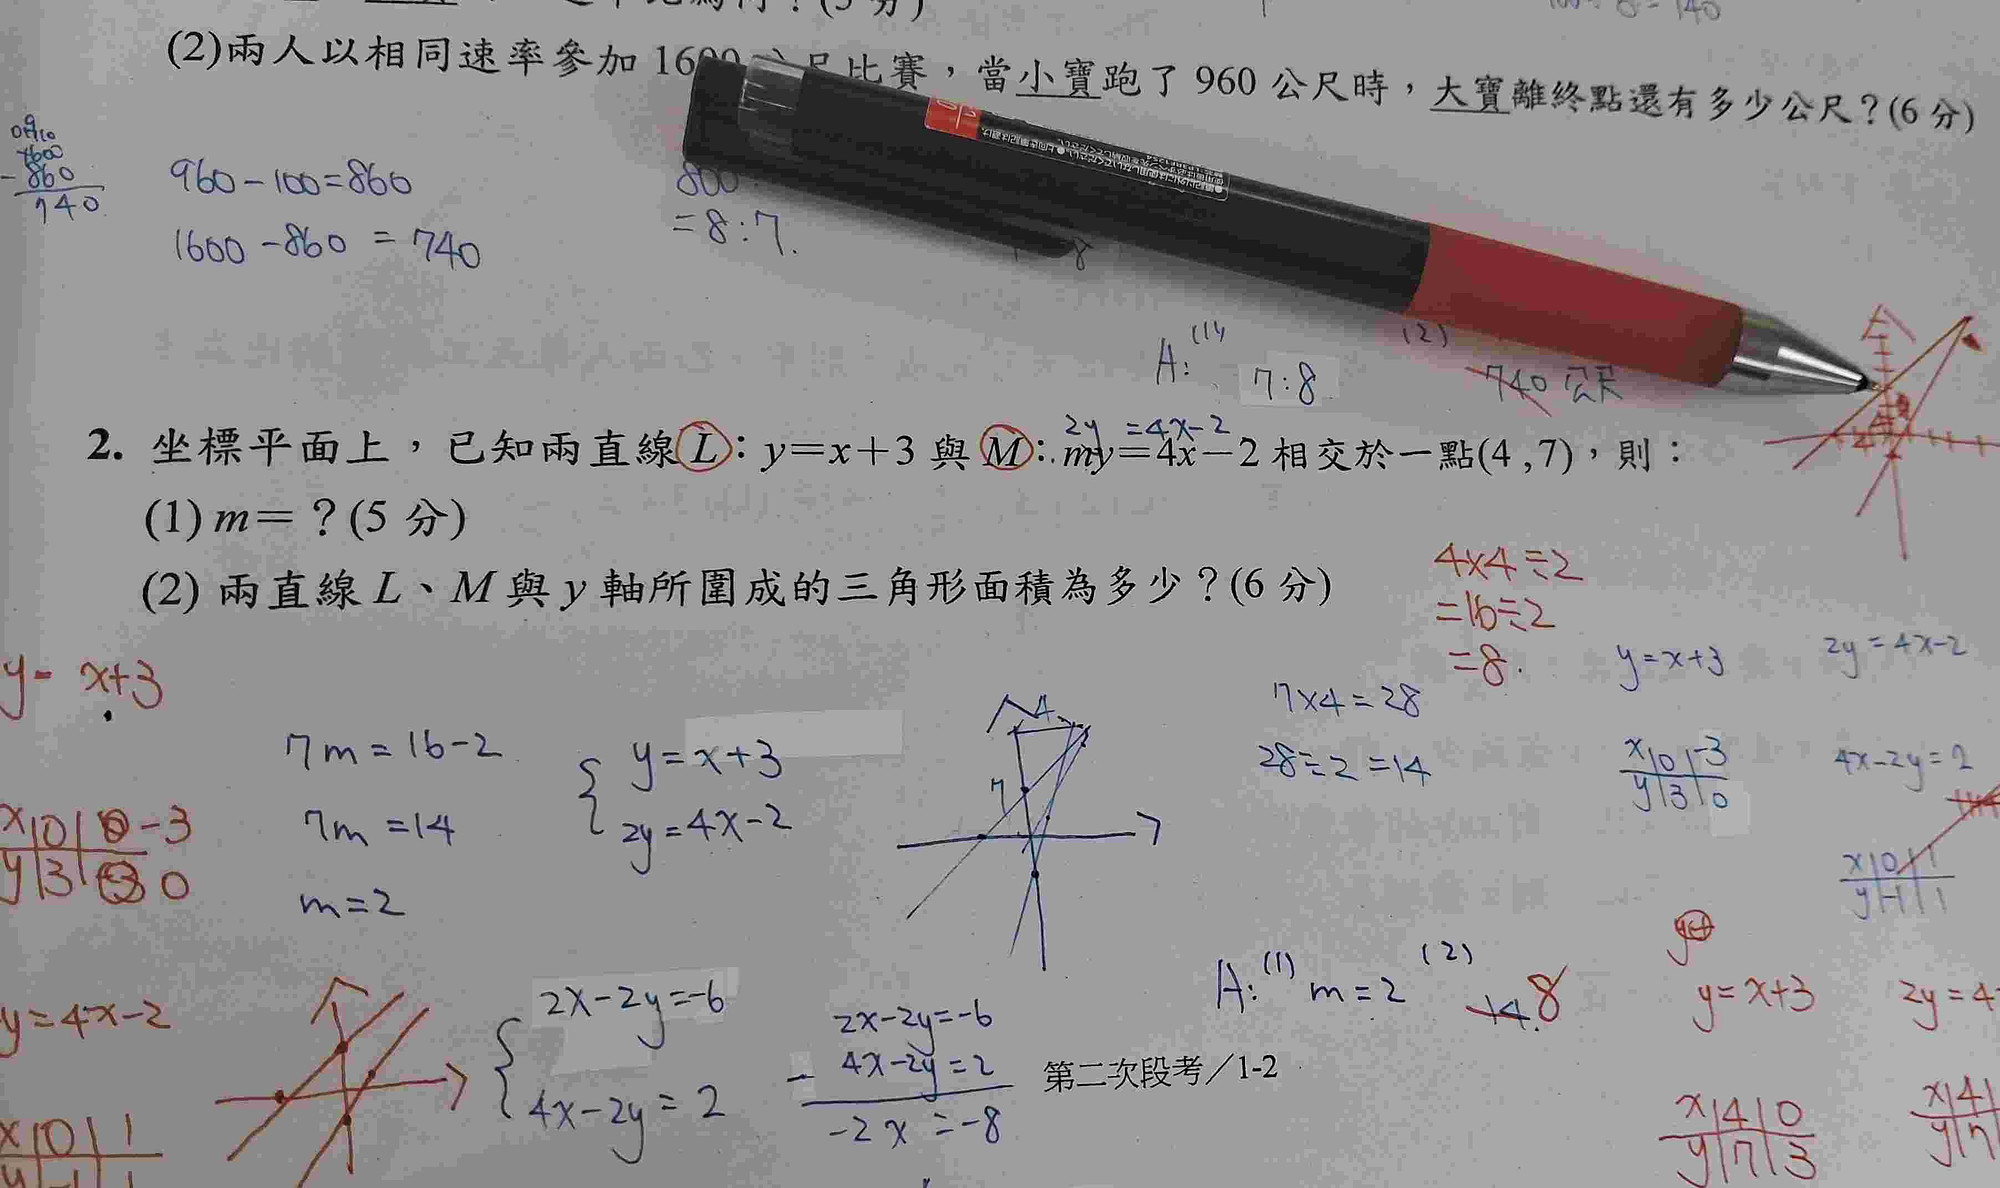 (2)兩人以相同速率參加 1600 公尺比賽，當小寶跑了 960 公尺時，大寶離終點還有多少公尺？(6 分)
1600
-860
740
960-100=860
1600-860=740
800
=8:7.
8
A: (1) 7:8 (2) 740 公尺
2y =4x-2
2. 坐標平面上，已知兩直線 L：y=x+3 與 M：my=4x-2 相交於一點(4,7)，則：
(1) m=？(5 分)
(2) 兩直線 L、M 與 y 軸所圍成的三角形面積為多少？(6 分)
4x4÷2
=16÷2
=8.
y= x+3
7m=16-2
7m=14
m=2
x 0 -3
y 3 0
y=x+3
2y=4x-2
4
7
7x4=28
28÷2=14
y=x+3
x 0 -3
y 3 0
2y=4x-2
4x-2y=2
x 0 1
y -1 1
y=4x-2
x 0 1
y -1 1
2x-2y=-6
4x-2y=2
2x-2y=-6
- 4x-2y=2
-2x=-8
A: (1) m=2 (2) 14. 8
第二次段考／1-2
y=x+3
x 4 0
y 7 3
2y=4
x 4
y 7